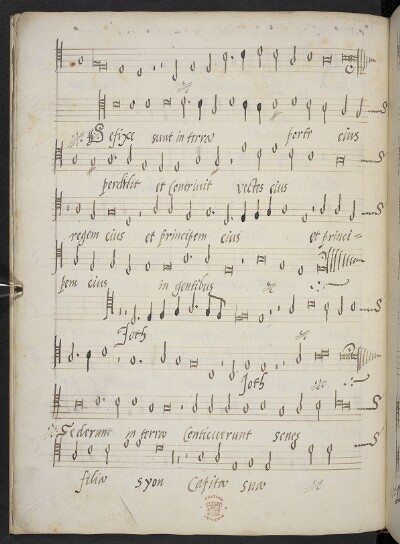 Defixe sunt in terra porte eius
perdidit et Contrivit vectes eius
regem eius et principem eius et princi=
pem eius in gentibus
Joth
Joth
Sederunt in terra Conticuerunt senes
filiæ syon Capita suæ